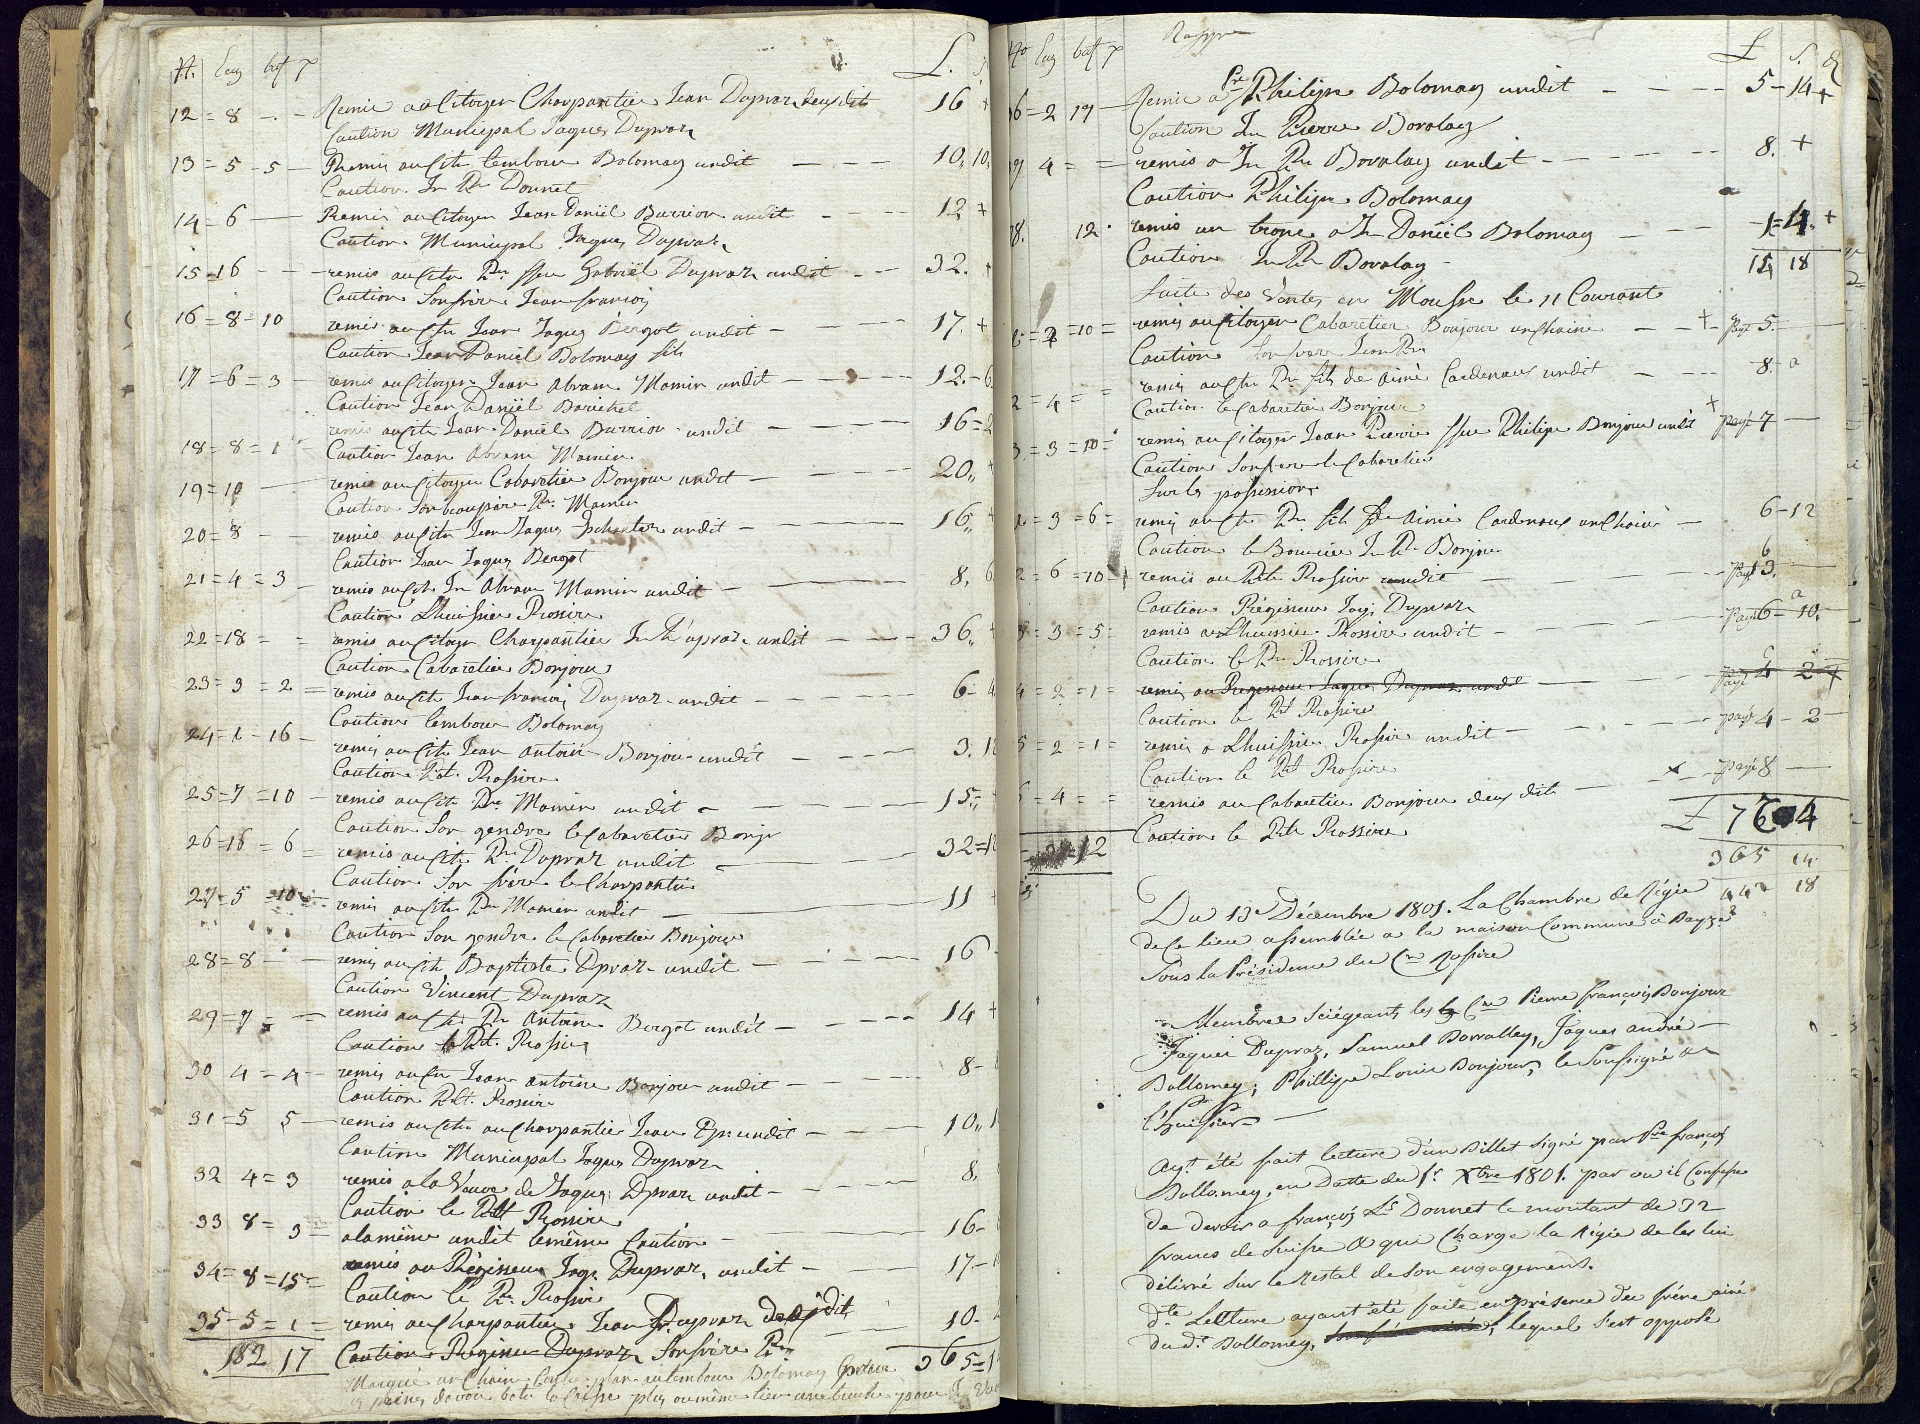 N. Ecu baf r L. S
12 = 8 - - - Remis au Citoyen Charpantier Jean Dupraz deux dit 16 +
Caution Municipal Jaques Dupraz
13 = 5 - 5 - Remis au Cit. tembour Bolomay undit - - - - 10,, 10,
Caution Jn Pr. Donnet
14 - 6 - Remis au Citoyen Jean Daniel Burrion undit - - - - 12 +
Caution Municipal Jaques Dupraz
15 - 16 - - - remis au Cit. Pr. ffeu Gabriël Dupraz undit - - - 32. +
Caution Son frère Jean francois
16 = 8 - 10 remis au Cit. Jean Jaques Bergot undit - - - - 17. +
Caution Jean Daniel Bolomay fils
17 = 6 = 3 - remis au Citoyen Jean Abram Mamin undit - - - - 12. - 6
Caution Jean Daniel Barichel
18 = 8 = 1 remis au Cit. Jean Daniel Burrion undit - - - 16 = 2
Caution Jean Abram Mamin
19 = 10 - remis au Citoyen Cabaretier Bonjour undit - - - - 20,,
Caution Son beaupère Pr. Mamin
20 = 8 - - remis au Cit. Jean Jaques undit - - - - 16,,
Caution Jean Jaques Bergot
21 = 4 = 3 - remis au Cit. Jn Abram Mamin undit - - - 8,, 6
Caution L'huissier Rossire
22 = 18 = = remis au Citoyn Charpantier Jn Dupraz undit - - - - 36,,
Caution Cabaretier Bonjour
23 = 3 = 2 = remis au Cit. Jean francois Dupraz undit - - - - 6 - 4
Caution tembour Bolomay
24 - 1 - 16 - remis au Cit. Jean antoine Bonjour undit - - - - 3. 1
Caution Pdt. Rossire
25 = 7 = 10 - remis au Cit. Pre Mamin undit - - - - 15,,
Caution Son gendre le Cabaretier Bonjr
26 = 16 = 6 = remis au Cit. Pr. Dupraz undit - - - 32 = 1
Caution Son frère le Charpantier
27 = 5 = 10 remis au Cit. Pre Mamin undit - - - 11
Caution Son gendre le Cabaretier Bonjour
28 = 8 - - remis au Cit. Baptiste Dpraz undit - - - - 16
Caution Vincent Dupraz
29 = 7 = = remis au Cit. Pr. Antoine Bergot undit - - - - 14 +
Caution le Pdt. Rossire
30 4 = 4 - remis au Cit. Jean antoine Bonjour undit - - - - 8 -
Caution Pdt. Rossire
31 = 5 5 - remis au Cit. au Charpantier Jean Dpr. undit - - - - 10,, 1
Caution Municipal Jaques Dupraz
32 4 = 3 remis a la Veuve de Jaques Dpraz undit - - - - 8,
Caution le Pdt Rossire
33 8 = 3 = a la même undit le même Caution - - - 16 -
34 = 8 = 15 = remis au Régisseur Jaqs Dupraz, undit - - - - 17 - 1
Caution le Pr. Rossire
35 - 5 = 1 = remis au Charpantier Jean Dupraz deux dit - - - 10 -
182 17 Caution Régisse Dupraz Son frère Pr. 365 = 1
Marque un Chain au tembour Bolomay
Rossire
No Ecu baf r L S. d
36 - 2 17 - Remis a Pre Philipe Bolomay undit - - - - 5 - 14 +
Caution Jn Pierre Boralay
37 4 = = remis a Jn Pr. Boralay undit - - - - 8. +
Caution Philipe Bolomay
38. 12. remis un trone a Jn Daniel Bolomay - - - - 1 = 4. +
Caution Jn Pr. Boralay - 15 18
Suite des Ventes en Mousse le 11 Courant
1 = 2 = 10 = remis au Citoyen Cabaretier Bonjour unchaine - - + payé 5. -
Caution Son frere Jean Pre
2 = 4 = = remis au Cit. Pr. fils de aimé Cardenaux undit - - - - 8. a
Caution le Cabaretier Bonjour
3 = 3 = 10 = remis au Citoyen Jean Pierre ffeu Philipe Bonjour undit + payé 7 -
Caution Son frere le Cabaretier
Sur les possessions
1 = 3 = 6 = remis au Cit. Pr. fils de aimé Cardenaux unchaine - 6 - 12
Caution le Boursier Jn Pr. Bonjour
2 = 6 = 10 - + remis au Pdt. Rossire undit - - - payé 13. -
Caution Régisseur Jaqs Dupraz
3 = 3 = 5 = remis a L'huissier Rossire undit - - - payé 6 = 10. -
Caution le Pdt Rossire
4 = 2 = 1 = remis au Regisseur Jaques Dupraz undit - - - payé 4 2
Caution le Pdt Rossire
5 = 2 = 1 = remis a L'huissie Rossire undit - - - payé 4 - 2 -
Caution le Pdt Rossire
6 = 4 = = remis au Cabaretier Bonjour deux dit - + - payé 8 -
Caution le Pdt Rossire £ 76 4
12
365 14
442 18
Du 13e Décembre 1801. La Chambre de Régie
de Ce lieu assemblée a la maison Commune à Payze
Sous la Présidence du Cen Rossire
Membres Siégeants les Cns Pierre françois Bonjour
Jaques Dupraz, Samuel Borralley, Jaques andré
Bollomey, Phillipe Louis Bonjour, le Soussigné &
l'huissier
Ayt été fait lecture d'un Billet Signé par Pre françois
Bollomey, en Datte du 1r. Xbre 1801. par ou il Confesse
de devoir a françois Ls Donnet le montant de 32
francs de Suisse & que Charge la Régie de les lui
délivré Sur le Restat de Son engagement.
dte Lecture ayant été faite en présence du frère ainé
du dt Bollomey, lequel S'est opposé